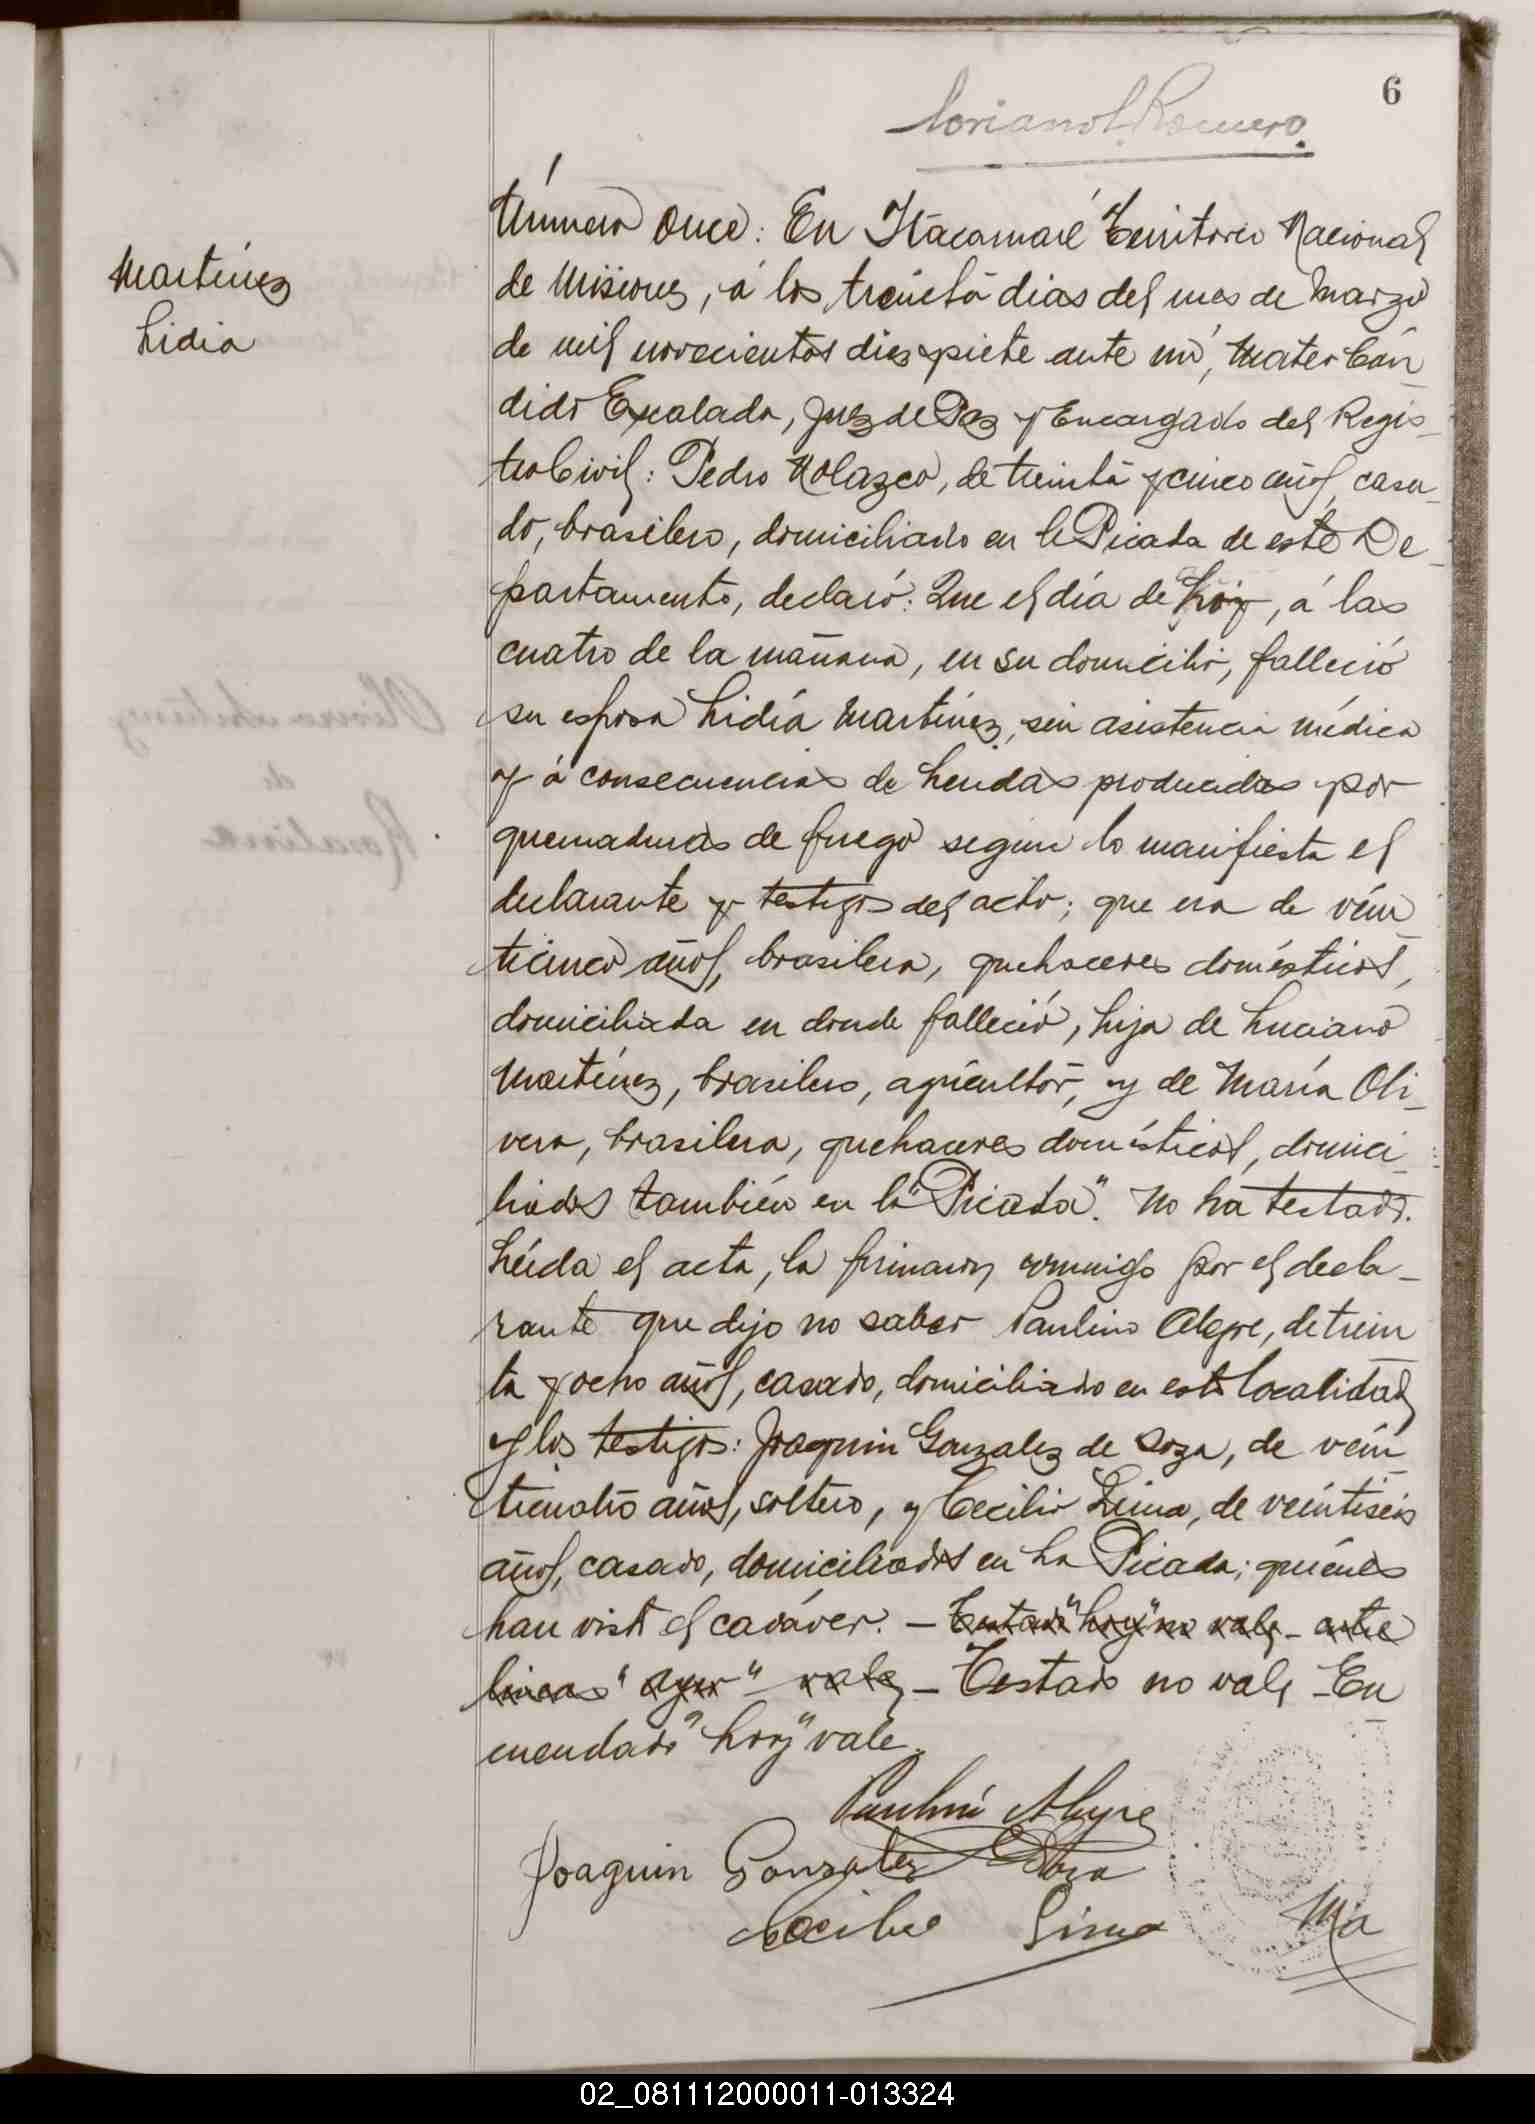 6
Loriano L. Romero.
Martínez
Lidia
Número Once: En Itacaruaré Territorio Nacional
de Misiones, á los treinta dias del mes de Marzo
de mil novecientos diez y siete ante mí, Mateo Cán_
dido Escalada, Juez de Paz y Encargado del Regis_
tro Civil: Pedro Nolazco, de treinta y cinco años, casa_
do, brasilero, domiciliado en la Picada de este De_
partamento, declaró: Que el día de hoy, á las
cuatro de la mañana, en su domicilio, falleció
su esposa Lidia Martínez, sin asistencia médica
y á consecuencias de heridas producidas por
quemaduras de fuego segun lo manifiesta el
declarante y testigos del acto; que era de vein_
ticinco años, brasilera, quehaceres domésticos,
domiciliada en donde falleció, hija de Luciano
Martínez, brasilero, agricultor, y de María Oli_
vera, brasilera, quehaceres domésticos, domici_
liados también en la "Picada". No ha testado.
Leida el acta, la firmaron conmigo por el decla_
rante que dijo no saber Paulino Alegre, de trein_
ta y ocho años, casado, domiciliado en esta localidad
y los testigos: Joaquin Gonzalez de Soza, de vein_
ticuatro años, soltero, y Cecilio Lima, de veintiseis
años, casado, domiciliados en La Picada; quiénes
han visto el cadáver. — Testado "hoy" no vale - entre
lineas "ayer" vale - Testado no vale - En
mendado "hoy" vale.
Paulino Alegre
Joaquin Gonzalez Soza
Cecilio Lima
Ma
02_081112000011-013324